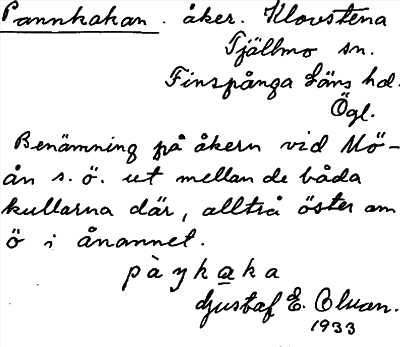 Pannkakan. åker. Klovstena
Tjällmo sn.
Finspånga Läns hd.
Ögl.
Benämning på åkern vid Mö-
ån s. ö. ut mellan de båda
kullarna där, alltså öster om
ö i ånamnet.
Gustaf E.
1933